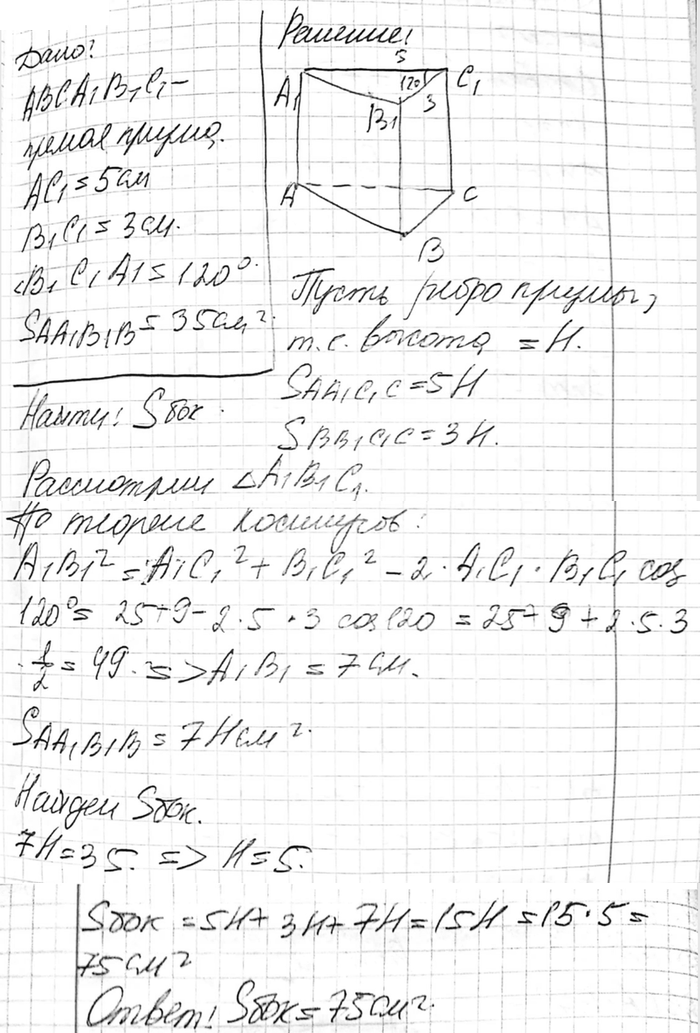 Дано:
ABCA₁B₁C₁ –
прямая призма.
AC₁ = 5 см
B₁C₁ = 3 см.
∠B₁C₁A₁ = 120°.
SAA₁B₁B = 35 см².
Найти: Sбок.
Решение:
5
A₁ 120 C₁
B₁ 3
A C
B
Пусть ребро призмы,
т.е. высота = H.
SAA₁C₁C = 5H
SBB₁C₁C = 3H.
Рассмотрим △A₁B₁C₁.
По теореме косинусов:
A₁B₁² = A₁C₁² + B₁C₁² – 2 · A₁C₁ · B₁C₁ cos
120° = 25 + 9 – 2 · 5 · 3 cos 120 = 25 + 9 + 2 · 5 · 3
· 1/2 = 49. => A₁B₁ = 7 см.
SAA₁B₁B = 7H см².
Найдем Sбок.
7H = 35. => H = 5.
Sбок = 5H + 3H + 7H = 15H = 15 · 5 =
75 см²
Ответ: Sбок = 75 см².